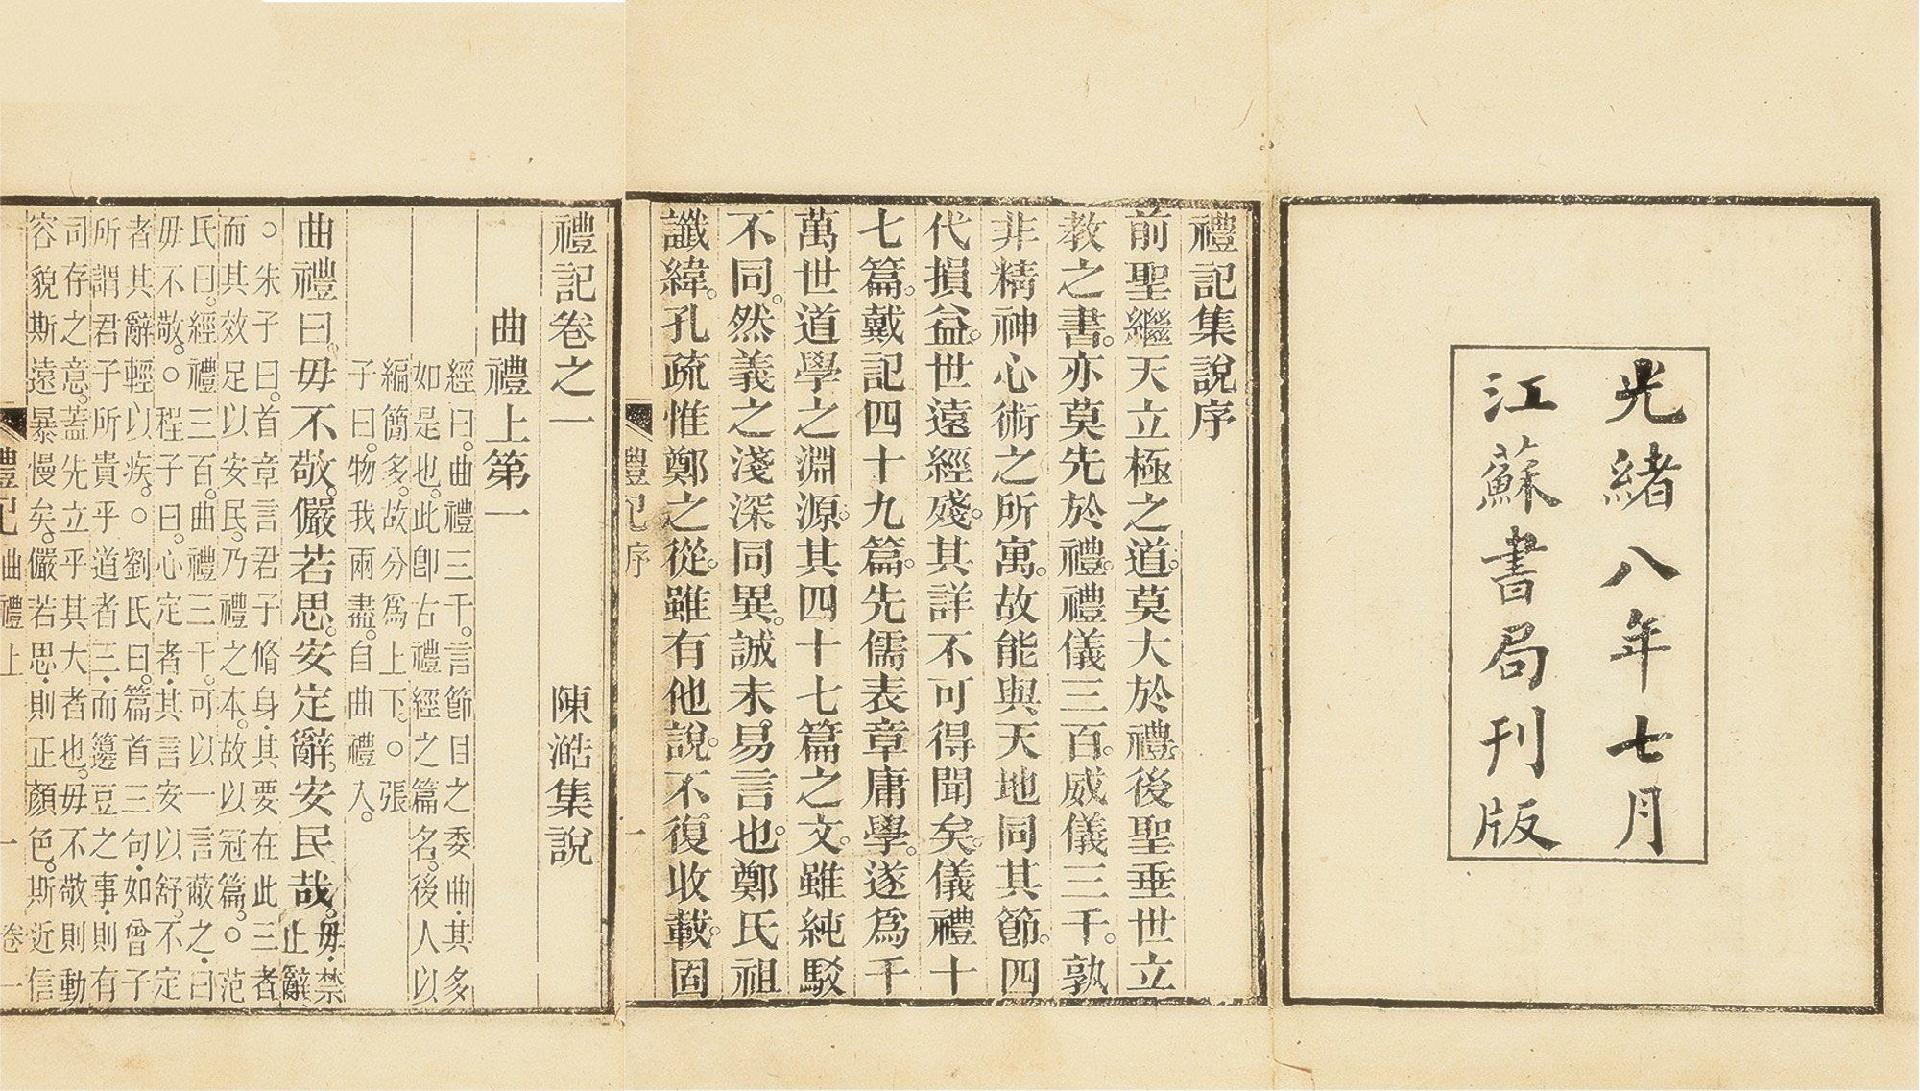 光緒八年七月
江蘇書局刊版
禮記集說序
前聖繼天立極之道。莫大於禮。後聖垂世立
教之書。亦莫先於禮。禮儀三百。威儀三千。孰
非精神心術之所寓。故能與天地同其節。四
代損益。世遠經殘。其詳不可得聞矣。儀禮十
七篇。戴記四十九篇。先儒表章庸學。遂爲千
萬世道學之淵源。其四十七篇之文。雖純駁
不同。然義之淺深同異。誠未易言也。鄭氏祖
讖緯。孔疏惟鄭之從。雖有他說。不復收載。固
禮記 序 一
禮記卷之一 陳澔集說
曲禮上第一
經曰。曲禮三千。言節目之委曲。其多
如是也。此卽古禮經之篇名。後人以
編簡多。故分爲上下。○張
子曰。物我兩盡。自曲禮入。
曲禮曰。毋不敬。儼若思。安定辭。安民哉。毋。禁
止辭
○朱子曰。首章言君子脩身。其要在此三者
而其效足以安民。乃禮之本。故以冠篇。○范
氏曰。經禮三百。曲禮三千。可以一言蔽之。曰
毋不敬。○程子曰。心定者。其言安以舒。不定
者其辭輕以疾。○劉氏曰。篇首三句。如曾子
所謂君子所貴乎道者三。而籩豆之事。則有
司存之意。蓋先立乎其大者也。毋不敬則動
容貌斯遠暴慢矣。儼若思。則正顏色。斯近信
禮記 曲禮上 一 卷一